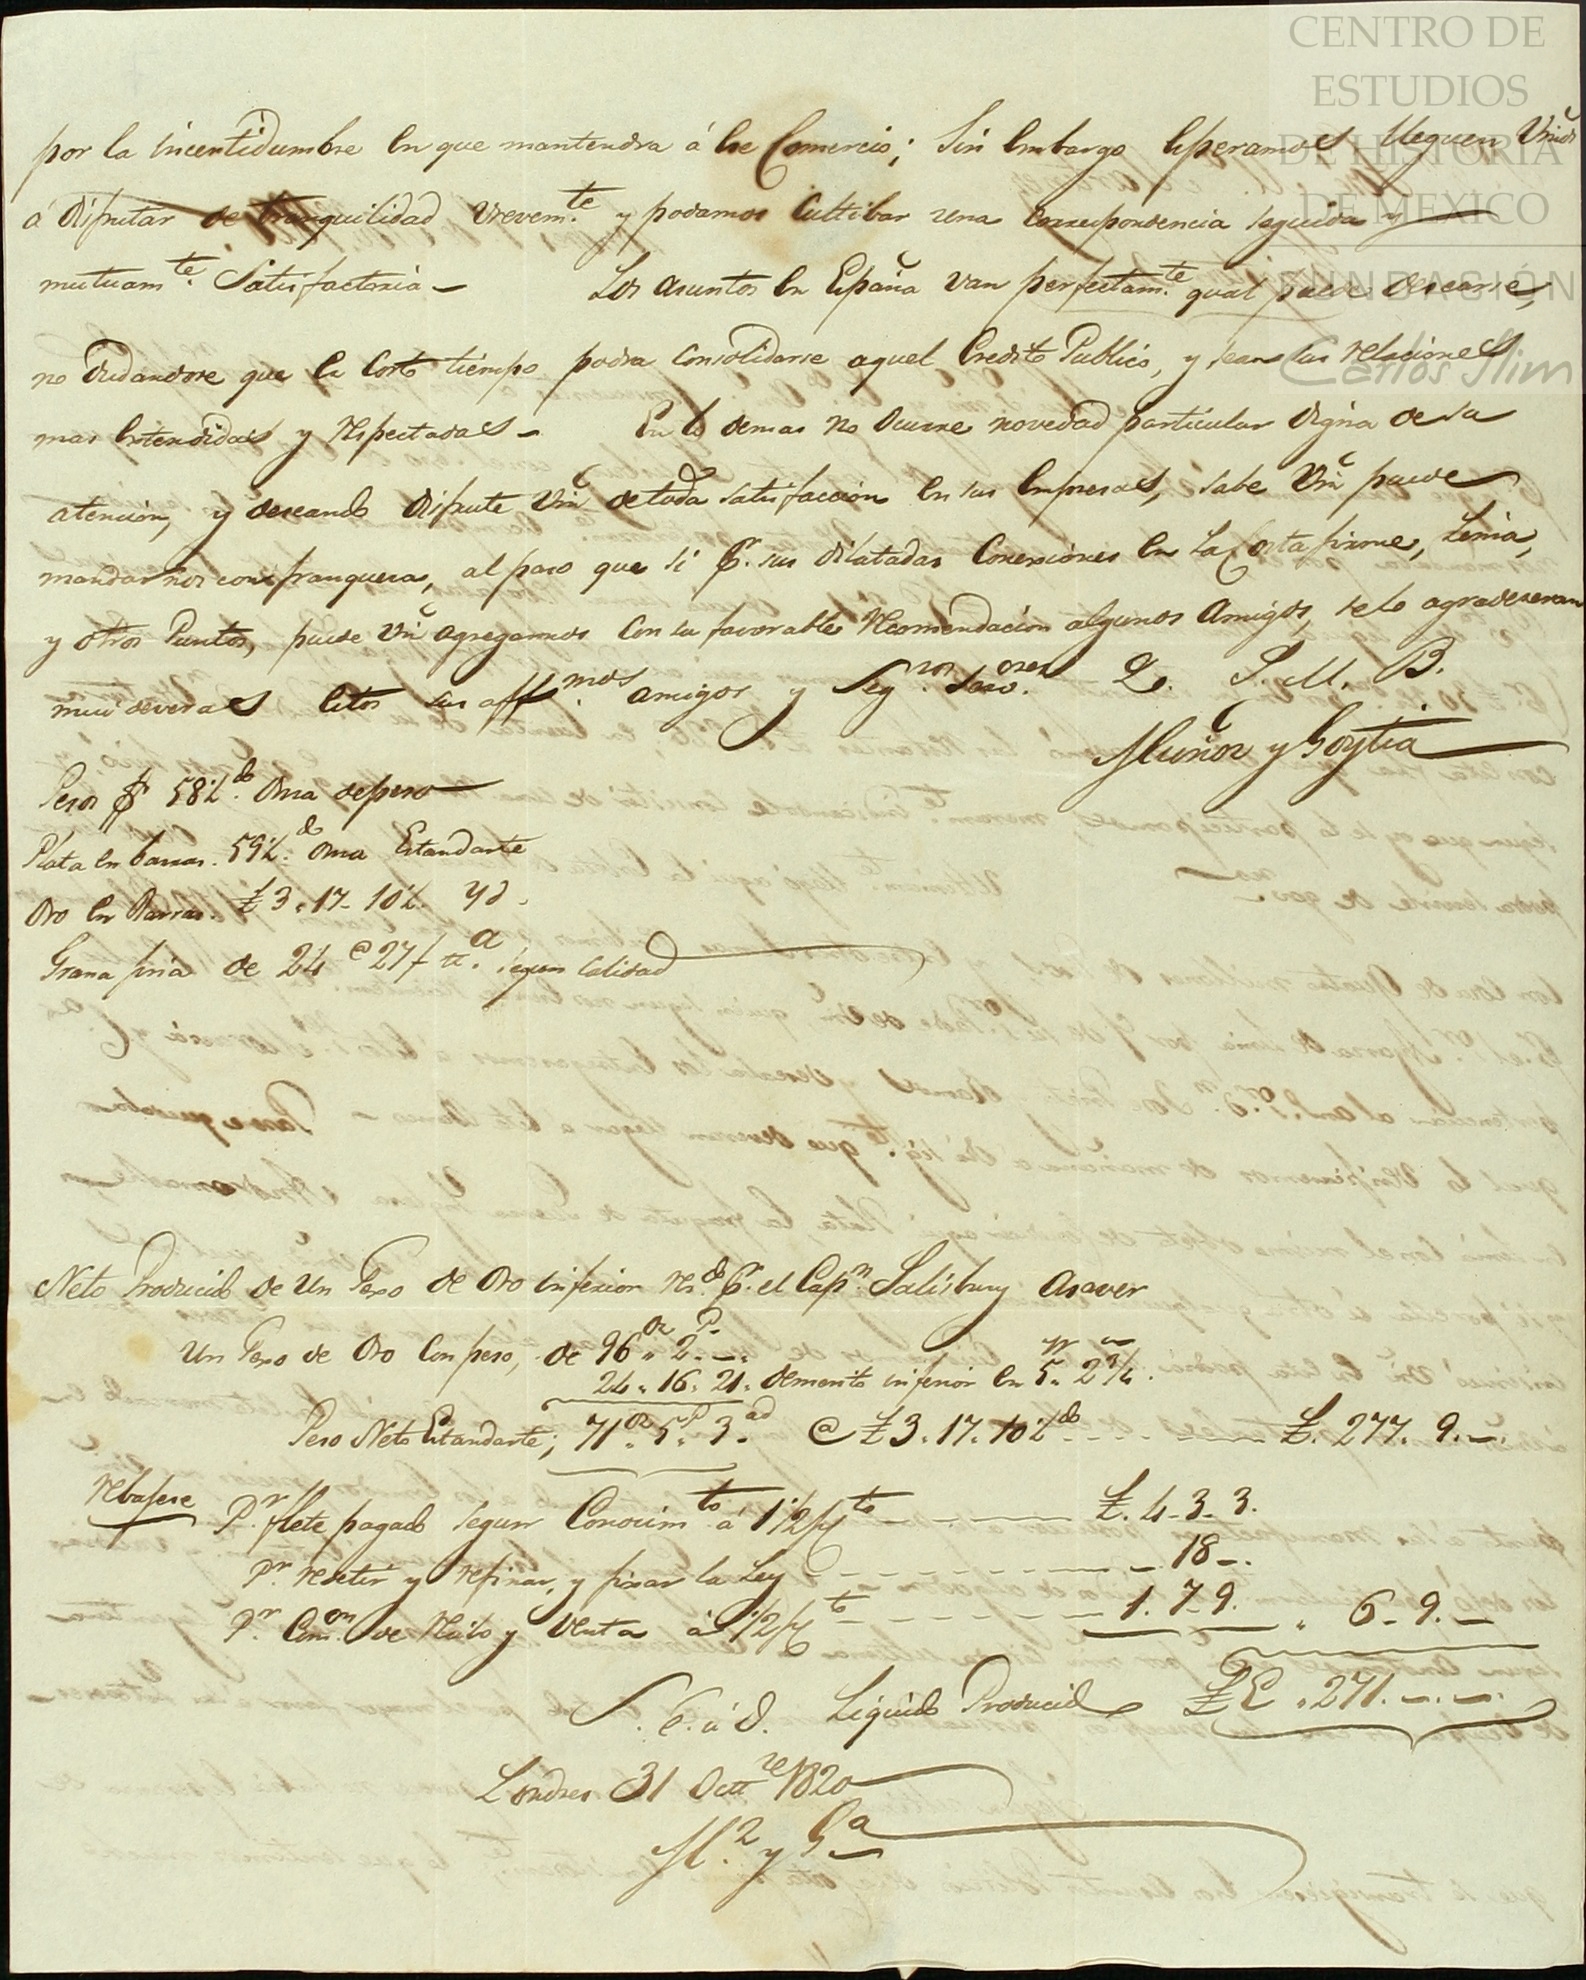 CENTRO DE
ESTUDIOS
DE HISTORIA
DE MEXICO
FUNDACIÓN
Carlos Slim
por la incertidumbre en que mantendra á ese Comercio; Sin embargo esperamos lleguen Vms
á disfrutar de tranquilidad brevem.te y podamos Cultibar una correspondencia seguida y
mutuam.te Satisfactoria – Los asuntos en España van perfectam.te qual puede desearse,
no dudandose que en corto tiempo podra Consolidarse aquel Credito Publico, y sean sus relaciones
mas estendidas y respectadas – En lo demas no ocurre novedad particular digna de su
atencion, y deseando disfrute Vm de toda satisfaccion en sus empresas, sabe Vm puede
mandarnos con franqueza, al paso que si p.r sus dilatadas Conexiones en la Costa firme, Lima,
y otros Puntos, puede Vm agregarnos con su favorable recomendacion algunos Amigos, se lo agradeceran
mui deveras estos sus aff.mos amigos y Seg.ros Serv.ores Q. S. M. B.
Muñoz y Goytia
Pesos $ 58½ d.s Onza de peso
Plata en barras. 59½ d.s Onza Estandarte
Oro en Barras. £3. 17. 10½. Yd.
Grana fina de 24 @ 27/ segun calidad
Neto Producido de Un Texo de Oro inferior rs.do p.r el Cap.n Salisbury Asaver
Un Texo de Oro Con peso, de 96 oz " 2 P. –.
24. 16. 21. demerito inferior en 5. 2¾.
Peso Neto Estandarte; 71 oz. 5 P. 3 ad @ £3. 17. 10½ d.s £. 277. 9. –.
rebajese P.r flete pagado segun Conocim.to á 1½ p% £. 4. 3. 3.
P.r reretir y refinar, y fixar la Ley – 18 –.
P.r Com.on de recibo y Venta á ½ p% 1. 7. 9. " 6. 9. –
S. E. ú O. Liquido Producido £E. 271. –. –.
Londres 31 Oct.re 1820
M.z y G.a